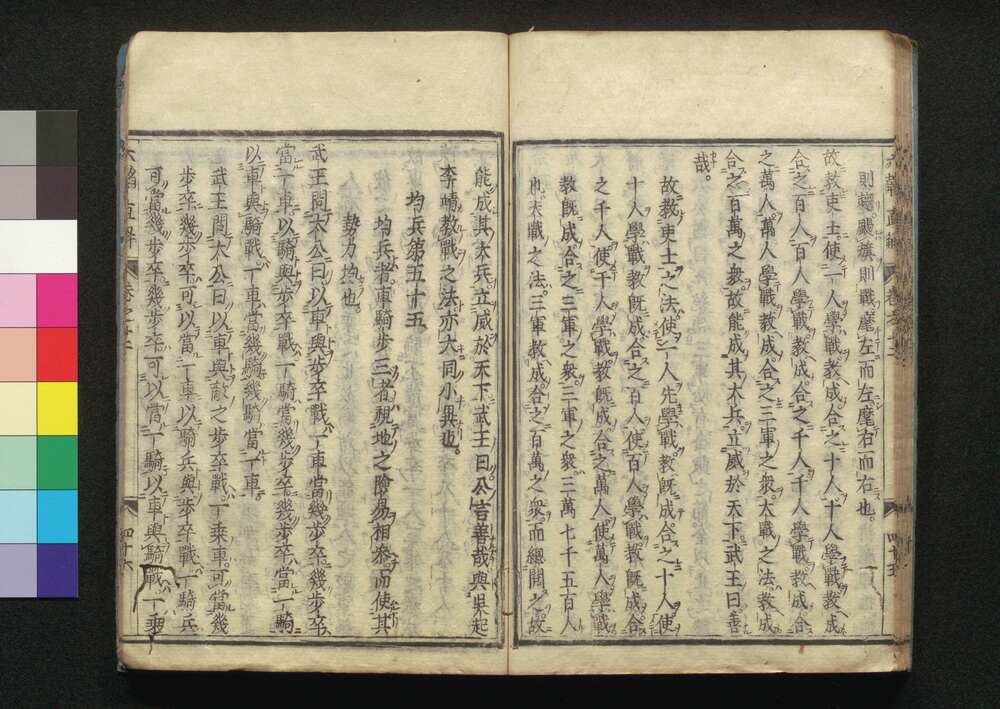 則趨颺旗則戰麾左而左麾右而右也。
故教吏士使一人學戰教成合之十人十人學戰教成
合之百人百人學戰教成合之千人千人學戰教成合
之萬人萬人學戰教成合之三軍之衆大戰之法教成
合之百萬之衆故能成其大兵立威於天下武王曰善
哉。
故教吏士之法使一人先學戰教既成合之十人使
十人學戰教既成合之百人使百人學戰教既成合
之千人使千人學戰教既成合之萬人使萬人學戰
教既成合之三軍之衆三軍之衆三萬七千五百人
也大戰之法三軍教成合之百萬之衆而總閱之故
四十五
能成其大兵立威於天下武王曰公言善哉與吳起
李靖教戰之法亦大同小異也。
均兵第五十五
均兵者車騎步三者視地之險易相參而使其
勢力均也。
武王問太公曰以車與步卒戰一車當幾步卒幾步卒
當一車以騎與步卒戰一騎當幾步卒幾步卒當一騎
以車與騎戰一車當幾騎幾騎當一車
武王問太公曰以車與敵之步卒戰一乘車可當幾
步卒幾步卒可以當一車以騎兵與步卒戰一騎兵
可當幾步卒幾步卒可以當一騎以車與騎戰一乘
六韜直解
卷之十二
四十六